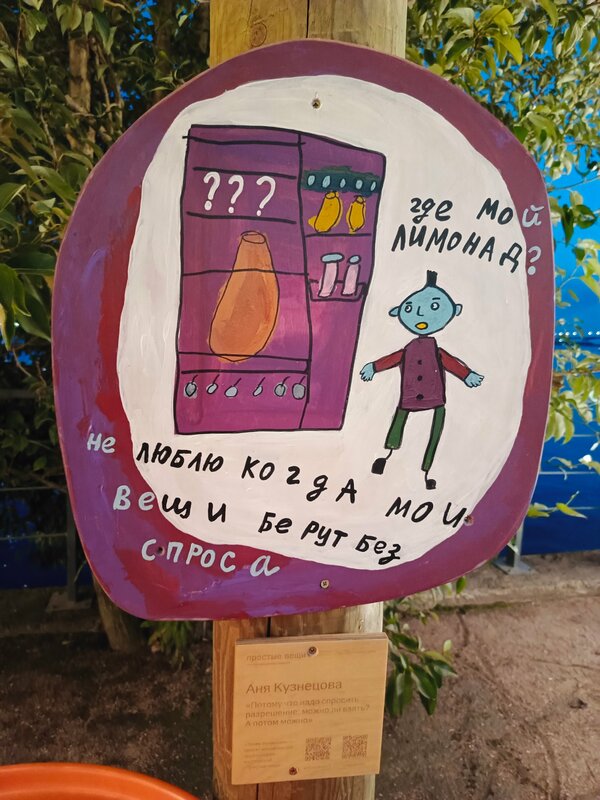 ???
где мой
лимонад?
не люблю когда мои
вещи берут без
спроса
простые вещи
Аня Кузнецова
«Потому что надо спросить
разрешение, можно ли взять?
А потом можно»